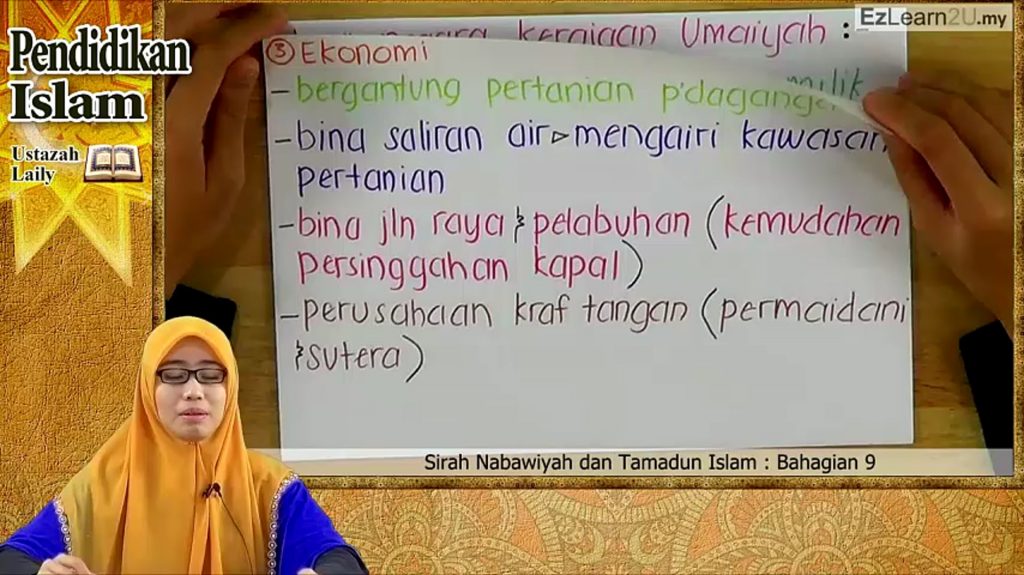 Pendidikan
Islam
Ustazah
Laily
EzLearn2U.my
kerajaan Umaiyah :
③ Ekonomi
- bergantung pertanian
- bina saliran air ▹ mengairi kawasan
pertanian
- bina jln raya & pelabuhan (kemudahan
persinggahan kapal)
- perusahaan kraf tangan (permaidani
& sutera)
Sirah Nabawiyah dan Tamadun Islam : Bahagian 9